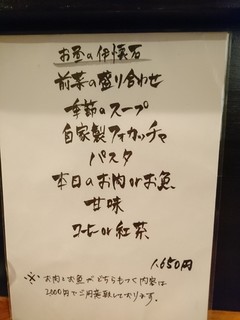 お昼の伊懐石
前菜の盛り合わせ
季節のスープ
自家製フォカッチャ
パスタ
本日のお肉orお魚
甘味
コーヒーor紅茶
1,650円
※お肉とお魚がどちらもつく内容は
2200円でご用意致しております。